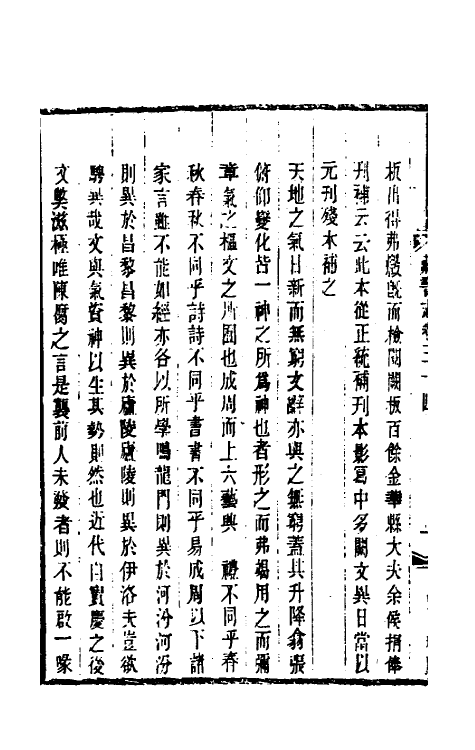 板出得弗燬旣而檢閱闕板百餘金華縣大夫余侯捐俸
刊補云云此本從正統補刊本影寫中多闕文異日當以
元刊殘本補之
天地之氣日新而無窮文辭亦與之無窮蓋其升降翕張
俯仰變化皆一神之所爲神也者形之而弗竭用之而彌
章氣之樞文之所囿也成周而上六藝興 禮不同乎春
秋春秋不同乎詩詩不同乎書書不同乎易成周以下諸
家言雖不能如經亦各以所學鳴龍門則異於河汾河汾
則異於昌黎昌黎則異於廬陵廬陵則異於伊洛夫豈欲
騁異哉文與氣資神以生其勢則然也近代自寶慶之後
文獘滋極唯陳腐之言是襲前人未發者則不能啟一喙